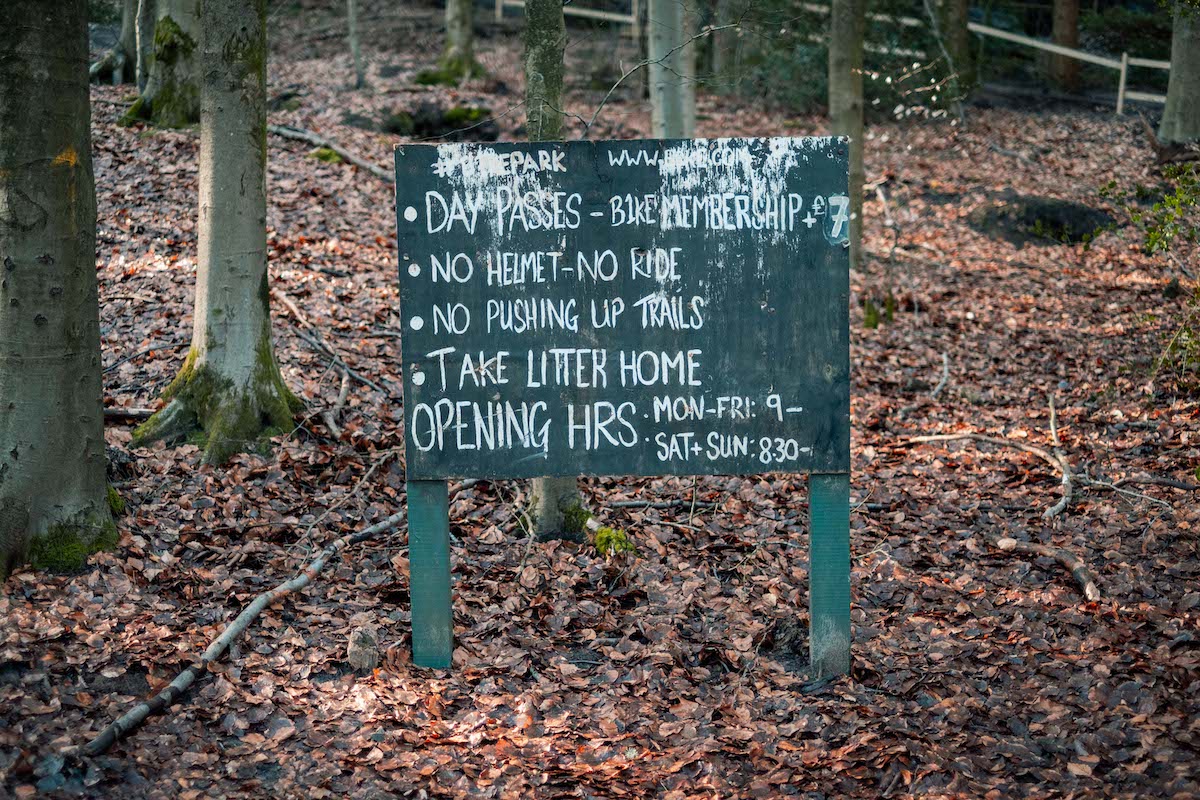 WWW.
• DAY PASSES - BIKE MEMBERSHIP + £7
• NO HELMET - NO RIDE
• NO PUSHING UP TRAILS
• TAKE LITTER HOME
OPENING HRS · MON-FRI: 9-
· SAT + SUN: 8.30-